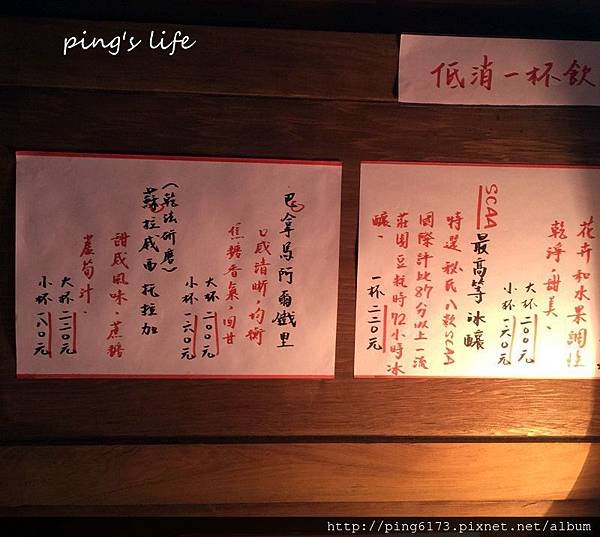 ping's life
低消一杯飲
花卉和水果調性
乾淨，甜美、
大杯二００元
小杯一六０元
SCAA 最高等冰釀
特選秘氏八款SCAA
國際評比87分以上一流
莊園豆耗時72小時冰
釀、
一杯二二０元
巴拿馬阿爾鐵里
口感清晰，均衡
焦糖香氣，回甘
大杯二００元
小杯一六０元
(乾法研磨)
蘇拉威西 托拉加
甜感風味，蔗糖
蘆筍汁、
大杯二二０元
小杯一八０元
http://ping6173.pixnet.net/album